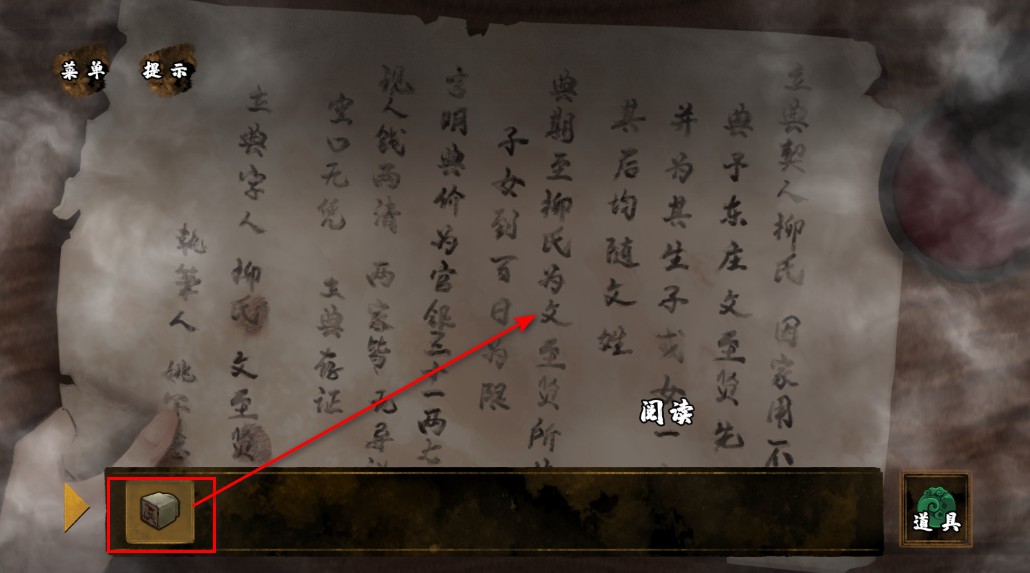 菜单
提示
立典契人柳氏 因家用不
典予东庄文至贤先
并为其生子或女一
其后均随文姓
典期至柳氏为文至贤所
子女到百日为限
言明典价为官银三十一两七
现人钱两清 两家皆无异
空口无凭 立典存证
立典字人 柳氏 文至贤
執筆人 姚
阅读
道具